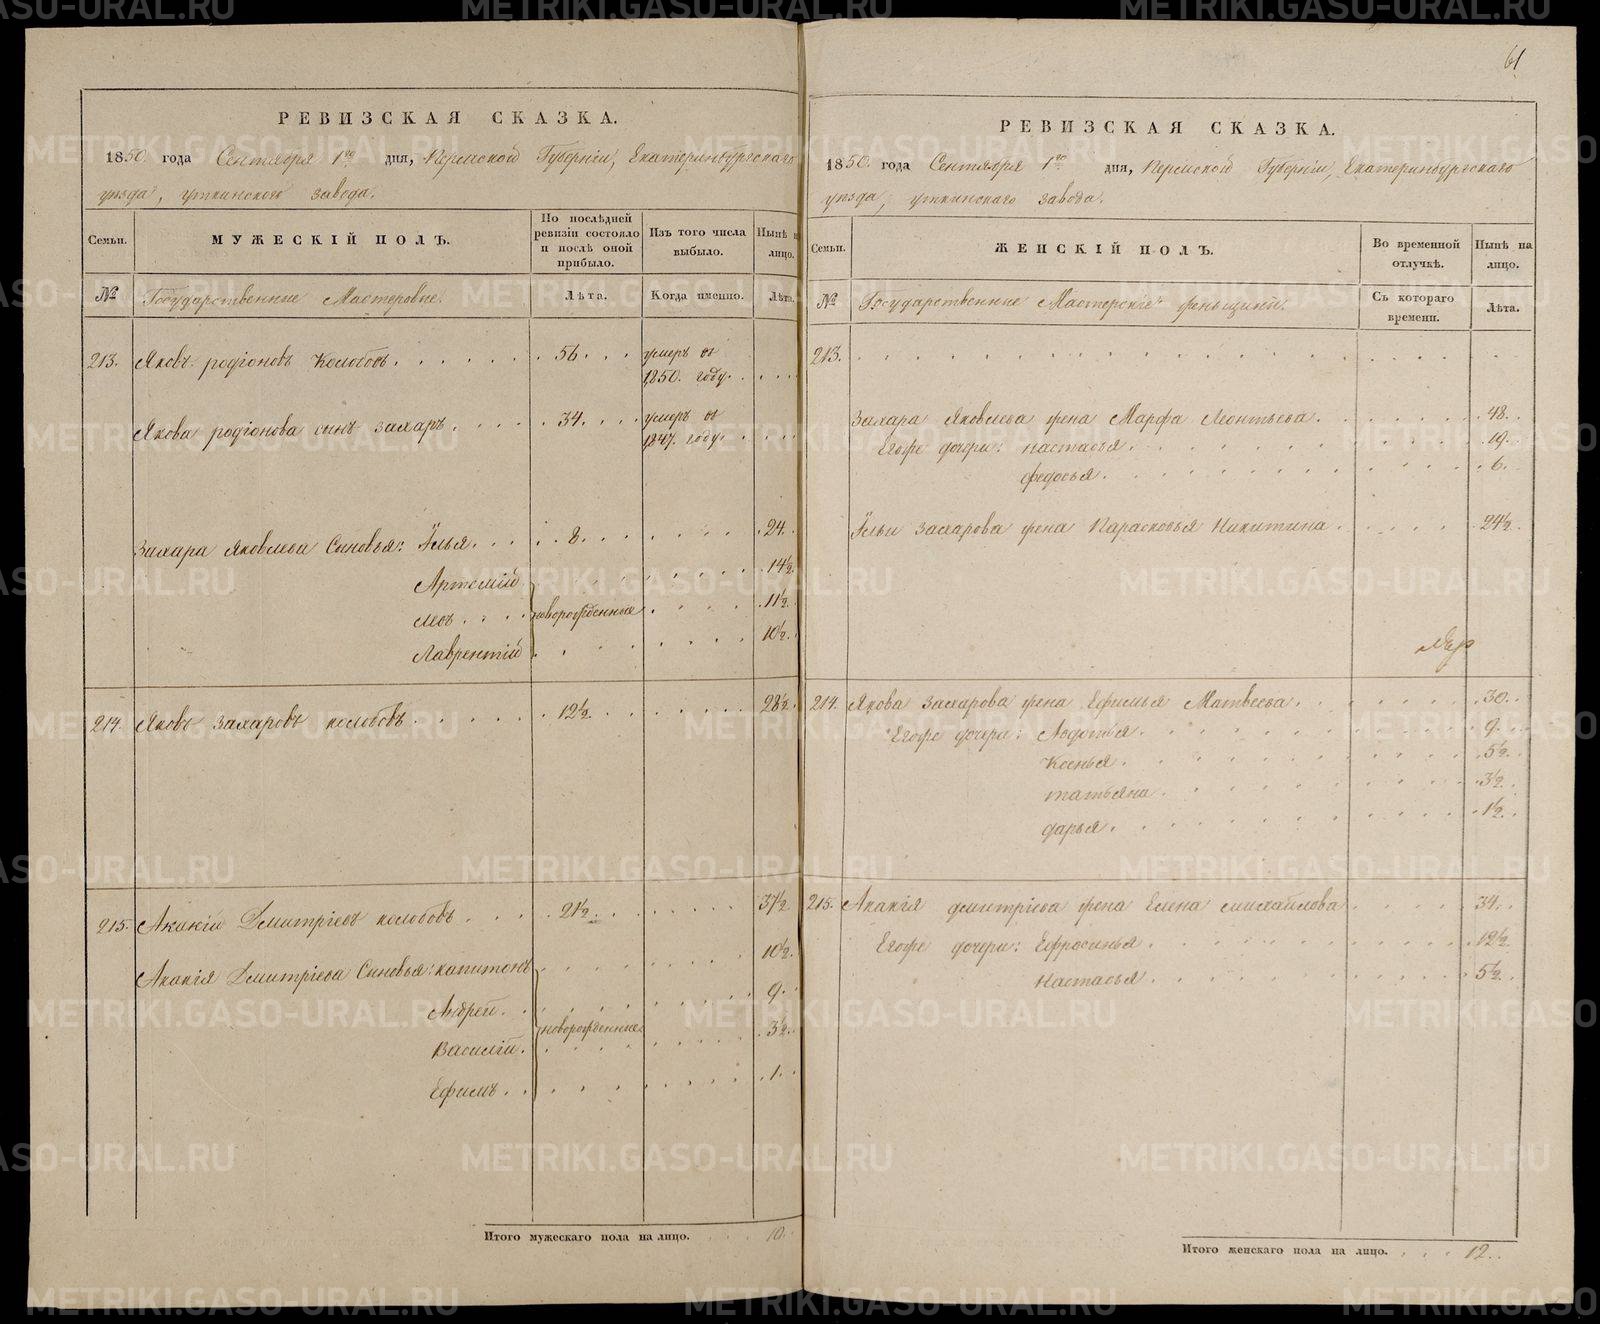 61
РЕВИЗСКАЯ СКАЗКА.
1850. года Сентября 1го дня, Пермской Губерніи, Екатеринбургскаго
уѣзда, уткинского завода.
Семьи.
МУЖЕСКІЙ ПОЛЪ.
По послѣдней ревизіи состояло и послѣ оной прибыло.
Изъ того числа выбыло.
Нынѣ на лицо.
№
Государственные Мастеровые.
Лѣта.
Когда именно.
Лѣта.
213. Яковъ родіоновъ Колобовъ . . . . . . 56. . . умеръ въ
1850. году. . . . .
Якова родіонова сынъ захаръ . . . . . 34. . . . умеръ въ
1847. году. . . . .
Захара Яковлева Сыновья: Илья. . . . . 8. . . . . . . 24.
Артемій . . . . . . . 14½.
Левъ . . . . новорожденные . . . . 11½.
Лаврентій . . . . . . . 10½.
214. Яковъ Захаровъ колобовъ . . . . . . 12½. . . . . . . 28½.
215. Акакій Дмитріевъ колобовъ . . . . . 21½. . . . . . . 37½.
Акакія Дмитріева Сыновья: капитонъ . . . . . . . 10½.
Андрей . . . . . . . . 9. .
новорожденные
Василій . . . . . . . . 3½.
Ефимъ . . . . . . . . 1. .
Итого мужескаго пола на лицо. . . . . 10.
РЕВИЗСКАЯ СКАЗКА.
1850. года Сентября 1го дня, Пермской Губерніи, Екатеринбургскаго
уѣзда, уткинскаго завода.
Семьи.
ЖЕНСКІЙ ПОЛЪ.
Во временной отлучкѣ.
Нынѣ на лицо.
№
Государственные Мастерскіе женьщины.
Съ котораго времени.
Лѣта.
213. . . . . . . . . . . . . . . . .
Захара Яковлева жена Марфа Леонтьева. . . . . . . 48. .
Егоже дочери: настасья. . . . . . . . 19. .
федосья. . . . . . . . . 6. .
Ильи Захарова жена Парасковья Никитина . . . . . . 24½. .
214. Якова Захарова жена Ефимья Матвеева. . . . . . . 30. .
Егоже дочери: Авдотья. . . . . . . . 9. .
Ксенья. . . . . . . . . 5½. .
татьяна . . . . . . . . 3½. .
дарья. . . . . . . . . 1½. .
215. Акакія дмитріева жена Елена михайлова . . . . . . 34. .
Егоже дочери: Ефросинья . . . . . . . . 12½.
Настасья . . . . . . . . 5½. .
Итого женскаго пола на лицо. . . . . 12. .
METRIKI.GASO-URAL.RU